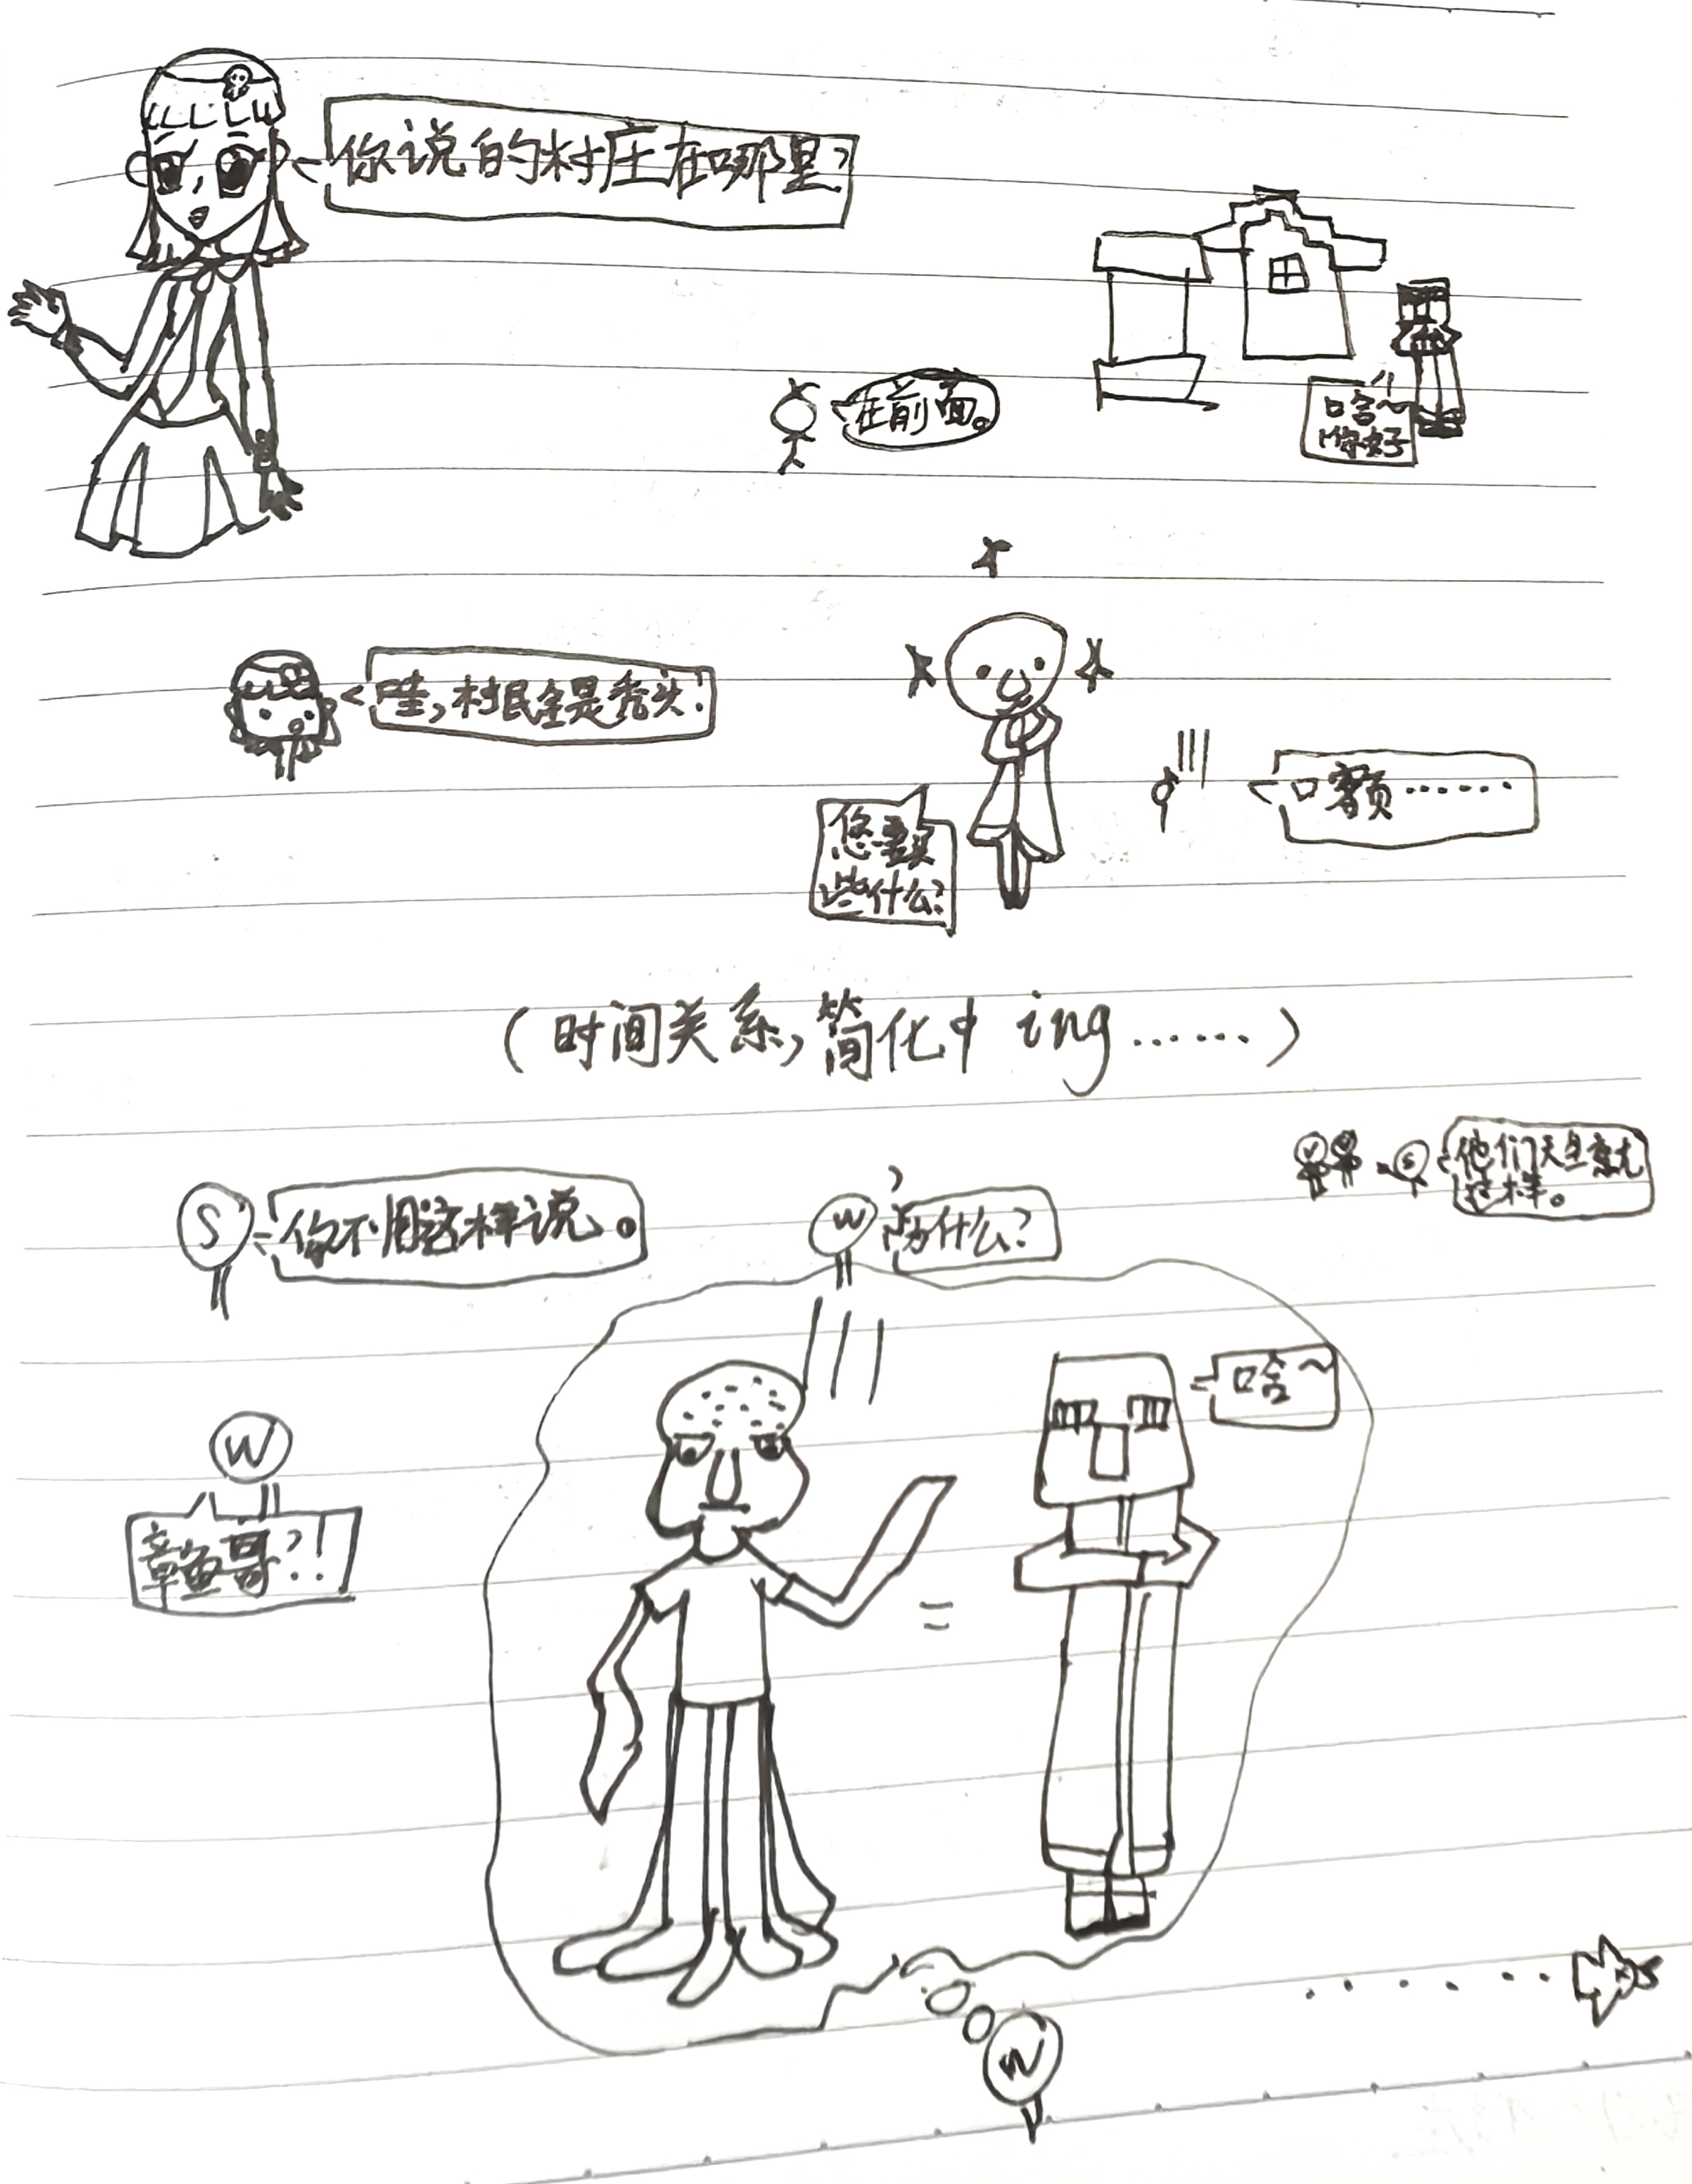 你说的村庄在哪里?
在前面。
哈~
你好
哇,村民全是秃头!
额……
您要买
些什么?
(时间关系,简化中 ing……)
他们天生就
这样。
S
你不用这样说。
W
为什么?
哈~
W
章鱼哥?!
=
W